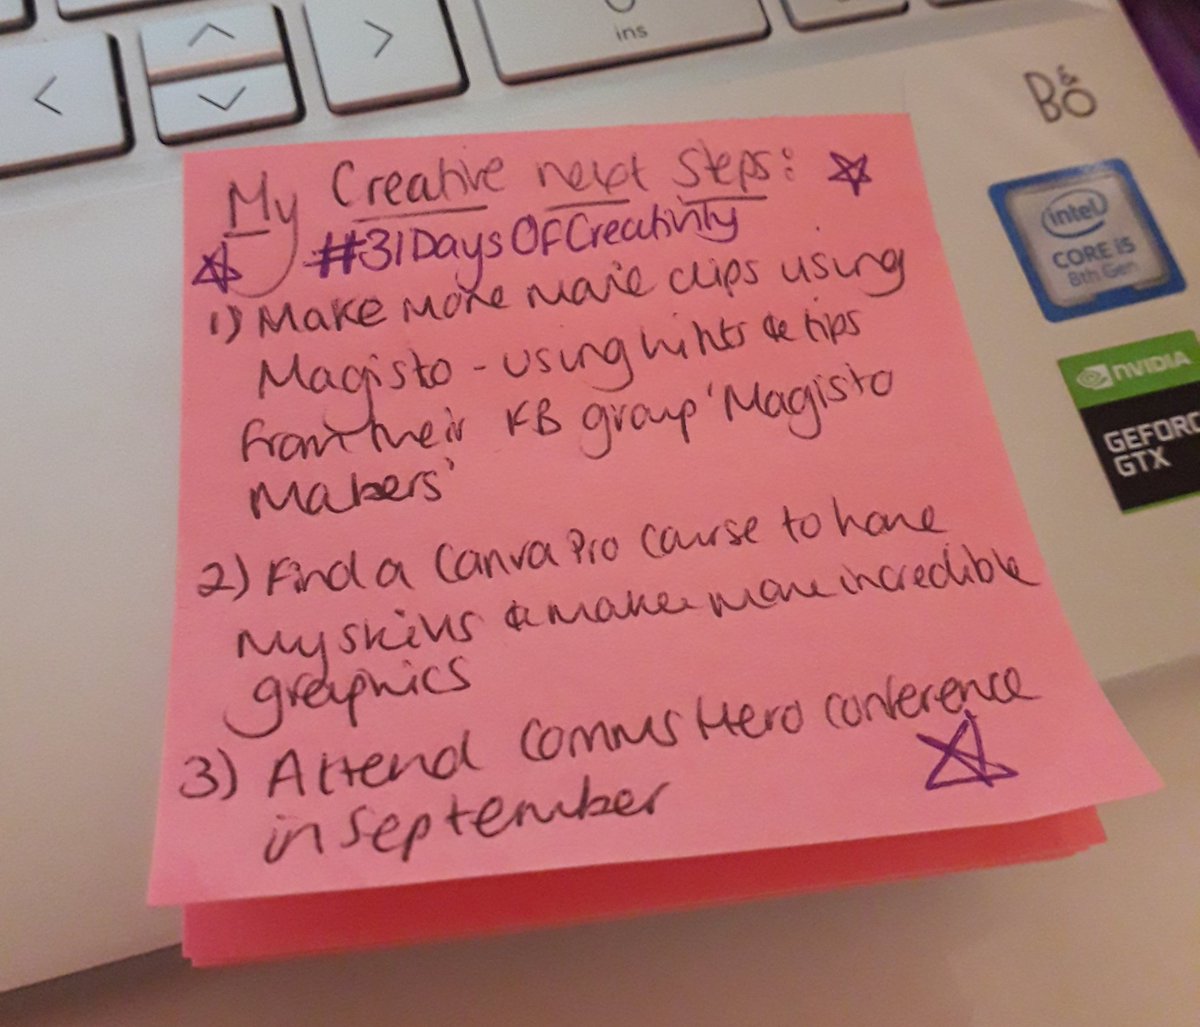 ins
B&O
intel
CORE i5
8th Gen
NVIDIA
GEFORC
GTX
My Creative next steps:
#31DaysOfCreativity
1) Make more movie clips using
Magisto - using hints & tips
from their FB group 'Magisto
Makers'
2) Find a Canva Pro course to hone
my skills & make more incredible
graphics
3) Attend Comms Hero conference
in September